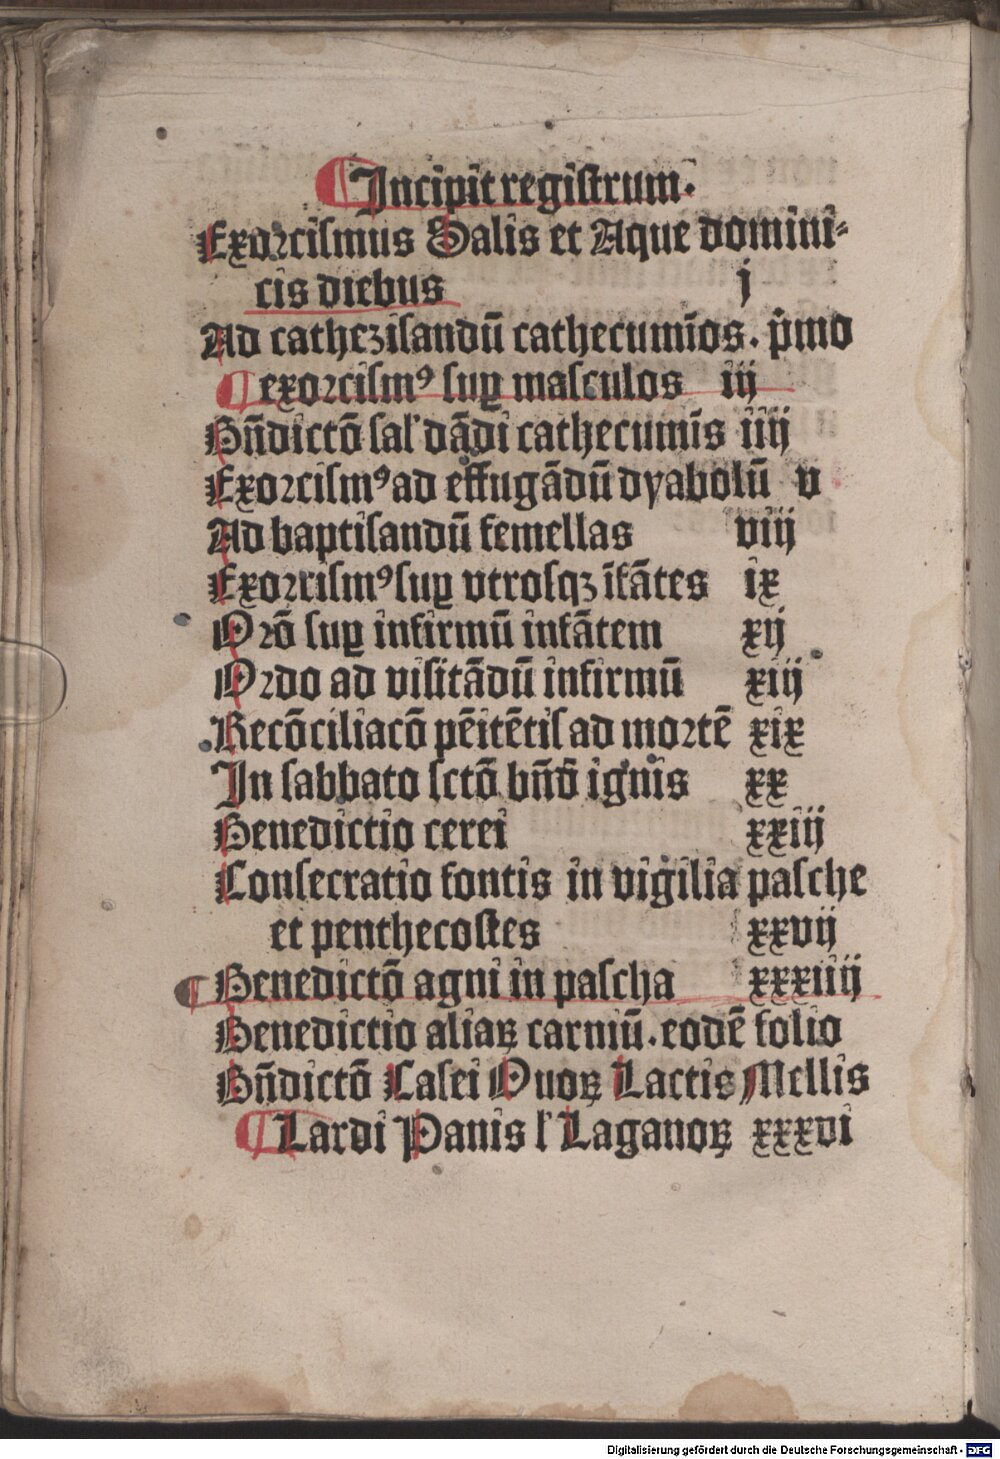 ¶ Incipit registrum.
Exorcismus Salis et Aque domini⸗
cis diebus j
Ad cathezisandū cathecumīos. p̄mo
¶ exorcismꝰ suꝑ masculos iij
Bn̄dictō sal' dādi cathecumīs iiij
Exorcismꝰ ad effugādū dyabolū v
Ad baptisandū femellas viij
Exorcismꝰ suꝑ vtrosqꝫ īfātes ix
Orō suꝑ infirmū infātem xij
Ordo ad visitādū infirmū xiij
Recōciliacō pēitētis ad mortē xix
In sabbato sctō bn̄d̄ ignis xx
Benedictio cerei xxiij
Consecratio fontis in vigilia pasche
et penthecostes xxvij
¶ Benedictō agni in pascha xxxiiij
Benedictio aliaꝝ carniū. eodē folio
Bn̄dictō Casei Ouoꝝ Lactis Mellis
¶ Lardi Panis l' Laganoꝝ xxxvi
Digitalisierung gefördert durch die Deutsche Forschungsgemeinschaft - DFG